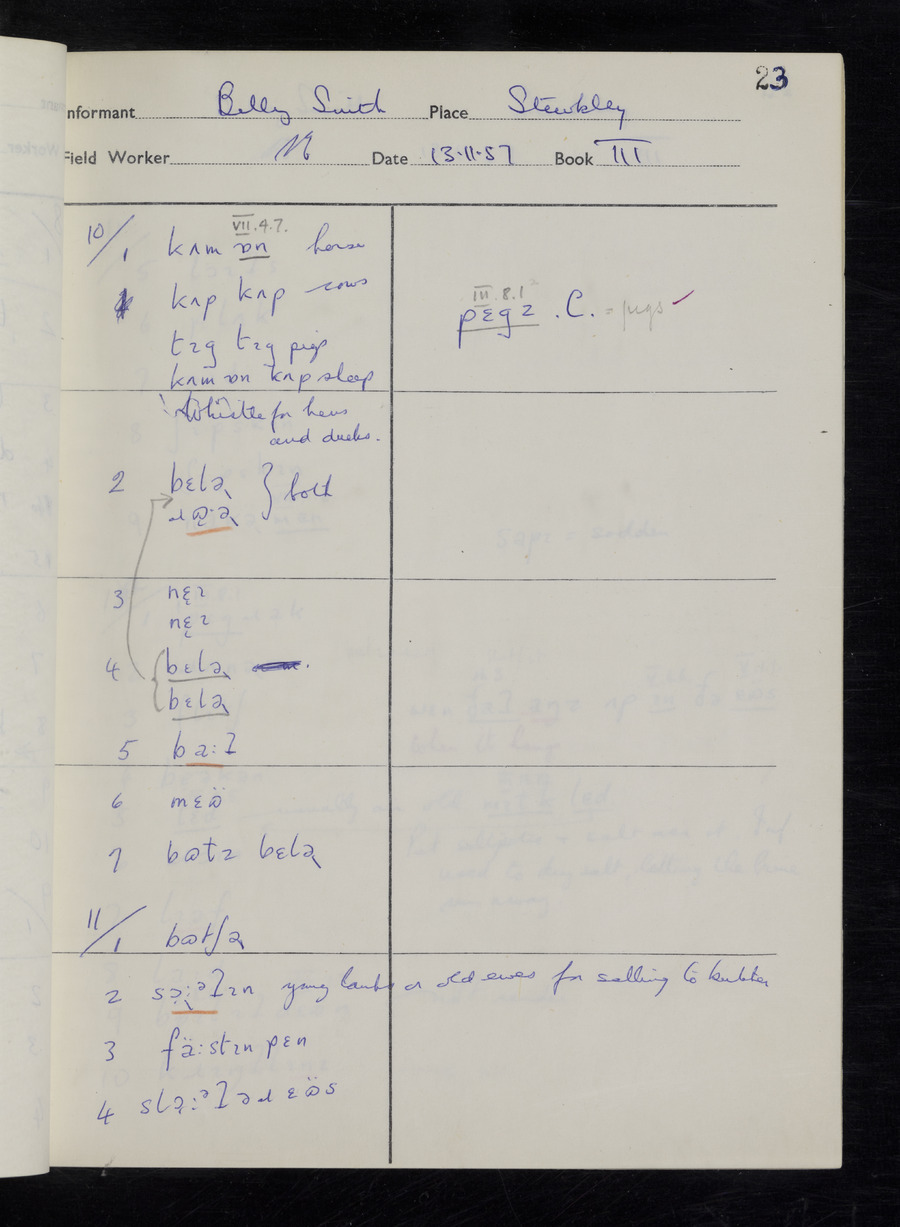 23
Informant Billy Smith Place Stewkley
Field Worker Date 13.11.57 Book III
VII.4.7.
10/1 kʌm ɒn horse
kʌp kʌp cows
III.8.1
pɛgz .C. = pigs ✓
tɪg tɪg pigs
kʌm ɒn kʌp sheep
Whistle for hens
and ducks.
2 bɛlə } both
3 nɛɪ
nɛɪ
4 bɛlə
bɛlə
5 ba:ɫ
6 mɛö
7 bɷtz bɛlə
11/1 bɷtʃə
2 young lambs or old ewes for selling to butcher
3 fä:stɪn pɛn
4